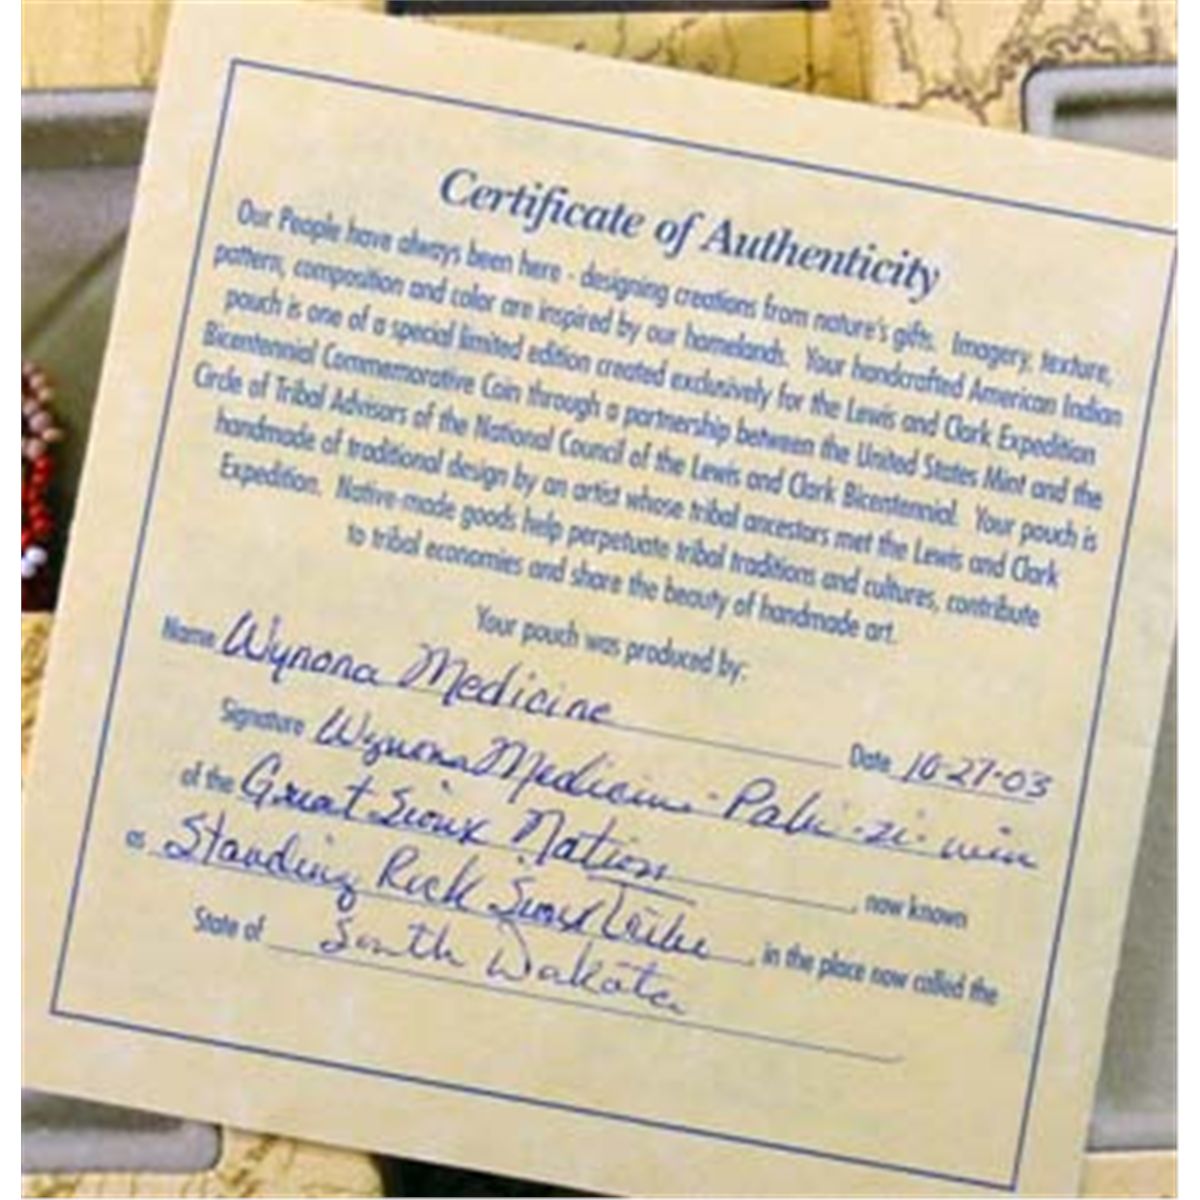 Certificate of Authenticity
Our People have always been here - designing creations from nature's gifts. Imagery, texture,
pattern, composition and color are inspired by our homelands. Your handcrafted American Indian
pouch is one of a special limited edition created exclusively for the Lewis and Clark Expedition
Bicentennial Commemorative Coin through a partnership between the United States Mint and the
Circle of Tribal Advisors of the National Council of the Lewis and Clark Bicentennial. Your pouch is
handmade of traditional design by an artist whose tribal ancestors met the Lewis and Clark
Expedition. Native-made goods help perpetuate tribal traditions and cultures, contribute
to tribal economies and share the beauty of handmade art.
Your pouch was produced by:
Name Wynona Medicine Date 10-27-03
Signature Wynona Medicine
of the Great Sioux Nation, now known
as Standing Rock Sioux Tribe, in the place now called the
State of South Dakota